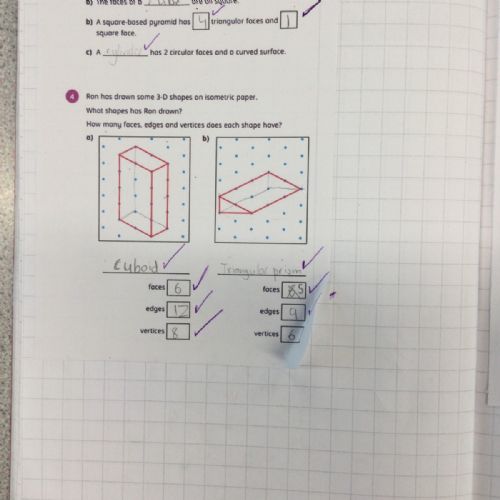 a) The faces of a cube are all square.
b) A square-based pyramid has 4 triangular faces and 1
square face.
c) A cylinder has 2 circular faces and a curved surface.
4 Ron has drawn some 3-D shapes on isometric paper.
What shapes has Ron drawn?
How many faces, edges and vertices does each shape have?
a) b)
Cuboid Triangular prism
faces 6 faces 5
edges 12 edges 9
vertices 8 vertices 6